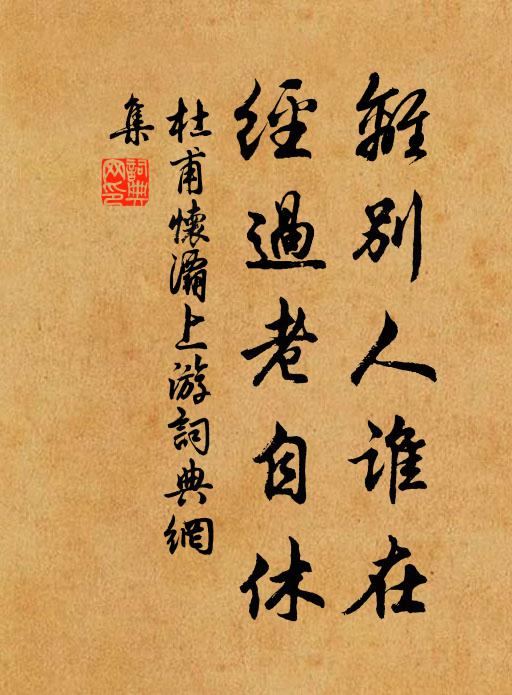 離別人誰在
經過老自休
杜甫懷灞上游詞典網
集
詞典
网印